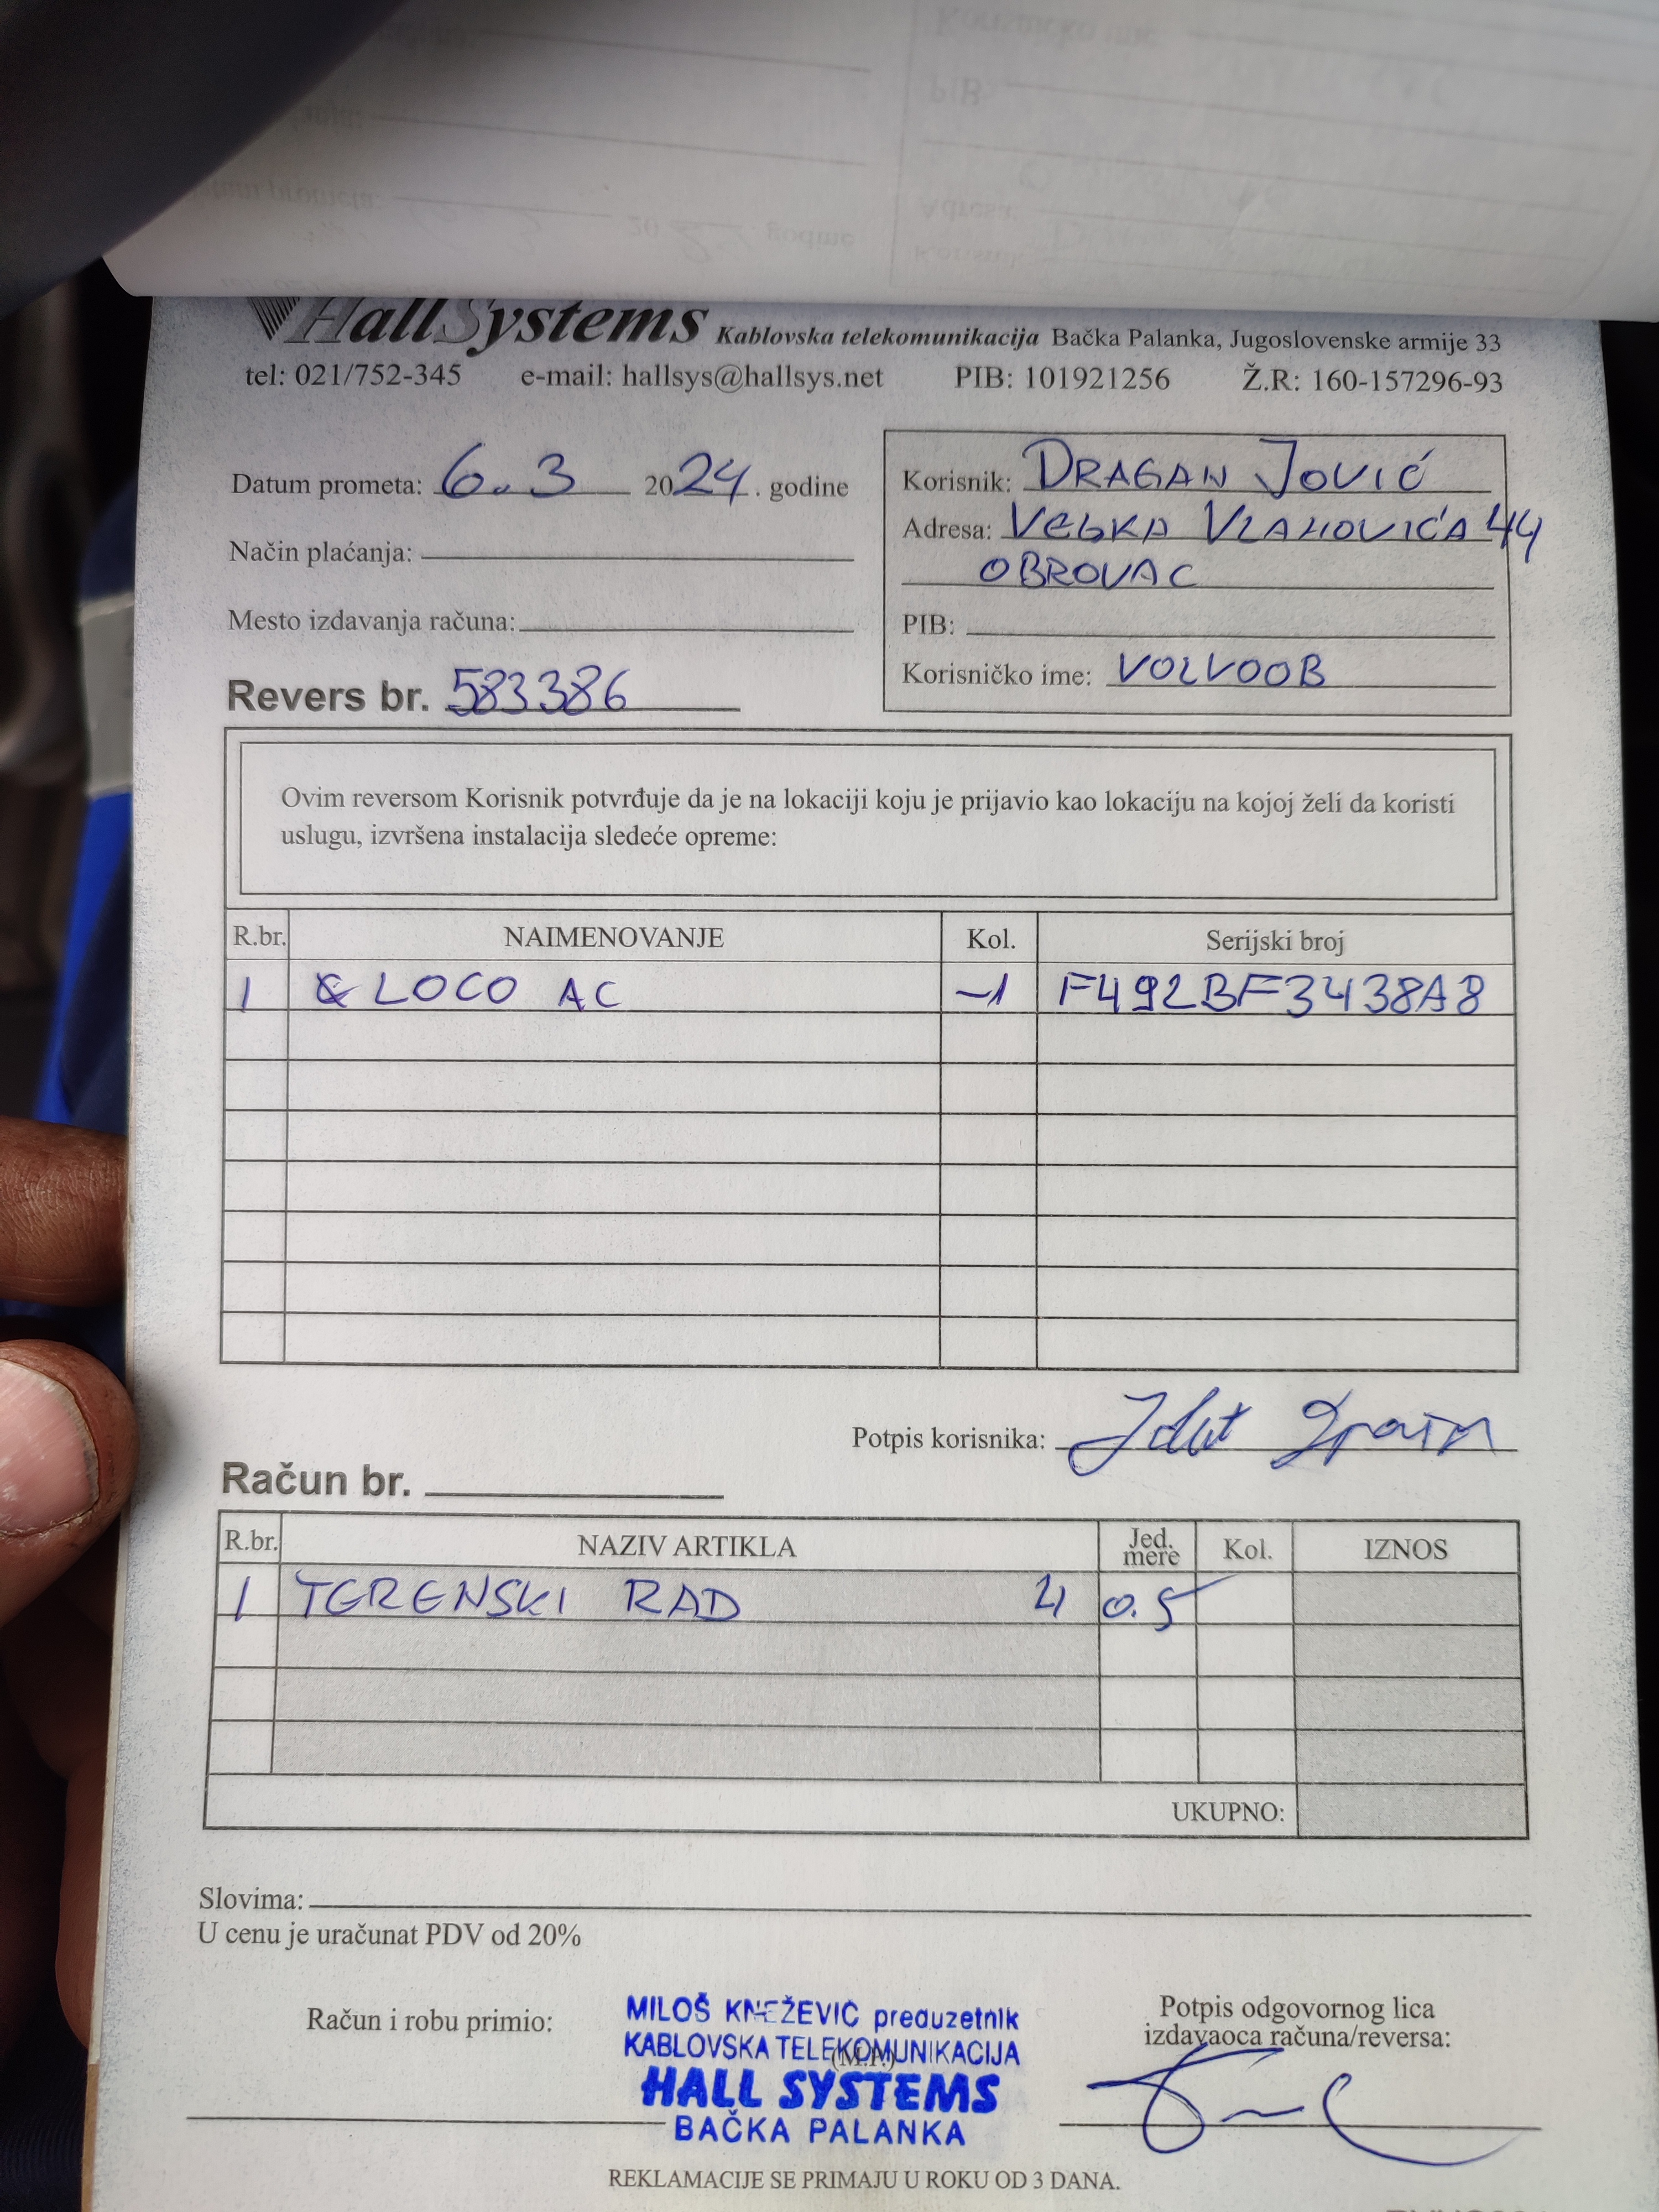 HallSystems Kablovska telekomunikacija Bačka Palanka, Jugoslovenske armije 33
tel: 021/752-345 e-mail: hallsys@hallsys.net PIB: 101921256 Ž.R: 160-157296-93
Datum prometa: 6.3 2024. godine
Način plaćanja:
Mesto izdavanja računa:
Revers br. 583386
Korisnik: DRAGAN JOVIĆ
Adresa: VELJKA VLAHOVIĆA 44
OBROVAC
PIB:
Korisničko ime: VOLVOOB
Ovim reversom Korisnik potvrđuje da je na lokaciji koju je prijavio kao lokaciju na kojoj želi da koristi
uslugu, izvršena instalacija sledeće opreme:
R.br. NAIMENOVANJE Kol. Serijski broj
1 LOCO AC -1 F492BF3438A8
Potpis korisnika:
Račun br.
R.br. NAZIV ARTIKLA Jed. mere Kol. IZNOS
1 TERENSKI RAD 4 0.5
UKUPNO:
Slovima:
U cenu je uračunat PDV od 20%
Račun i robu primio:
MILOŠ KNEŽEVIĆ preduzetnik
KABLOVSKA TELEKOMUNIKACIJA
(M.P.)
HALL SYSTEMS
BAČKA PALANKA
Potpis odgovornog lica
izdavaoca računa/reversa:
REKLAMACIJE SE PRIMAJU U ROKU OD 3 DANA.